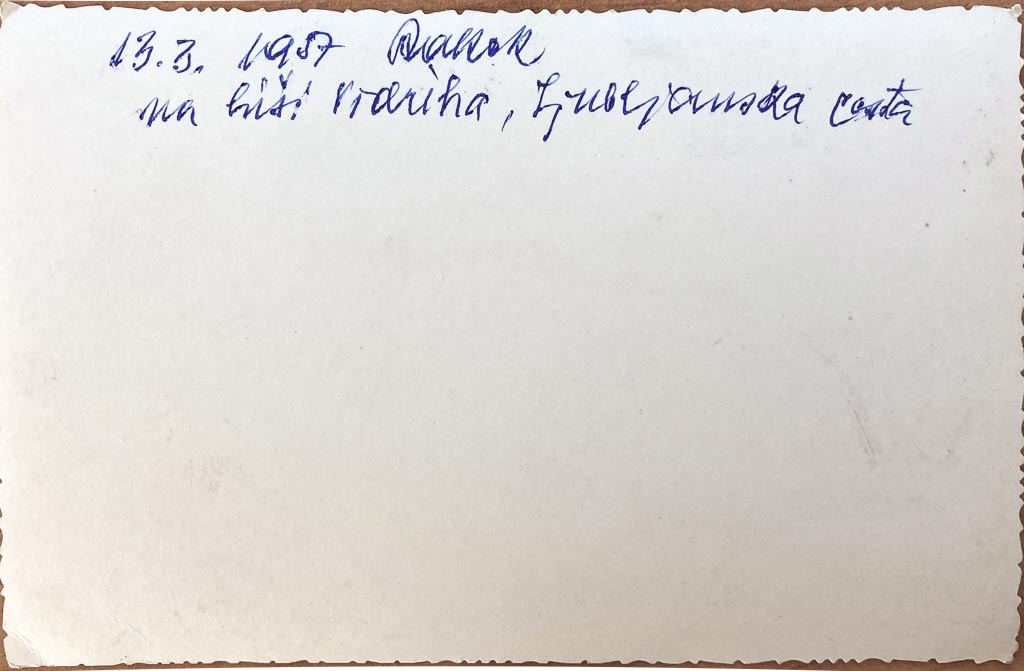 13.3. 1957 Rakek
na hiši Vidriha, Ljubljanska cesta